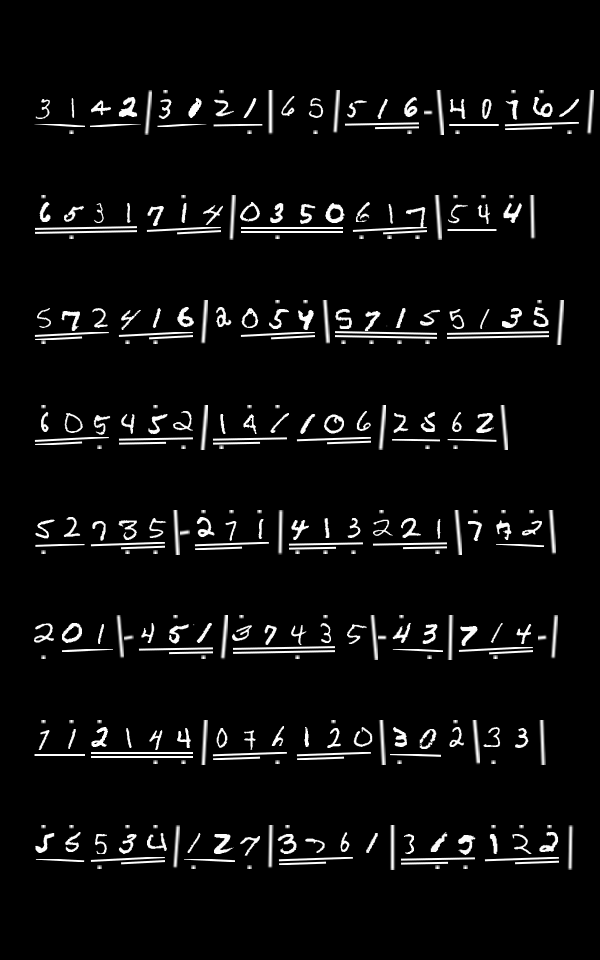 3142|3021|65|516-|40761|
6531714|0350617|544|
572416|2054|57155135|
605452|147106|2562|
52735|-271|413221|772|
201|-451|37435|-43|714-|
712144|076120|302|33|
56534|127|3761|315122|